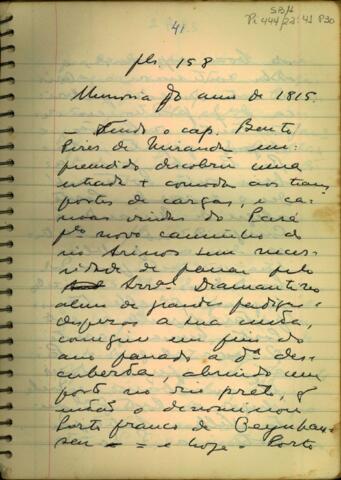 SBH
Pi 444/22: 41 P30
41
pls. 158
Memoria do anno de 1815.
— Tendo o cap. Bento
Pires de Miranda em-
prendido descobrir uma
estrada + comoda aos trans
portes de cargas, e ca-
noas vindas do Pará
plo novo caminho do
rio Arinos sem neces-
sidade de passar pelo
Arral Diamantino
alem de grandes
a sua custa,
conseguiu em fins do
ano passado a dª des-
cuberta, abrindo um
porto no rio preto, q
então o denominou
Porto franco de Oeynhau-
sen = e hoje = Porto